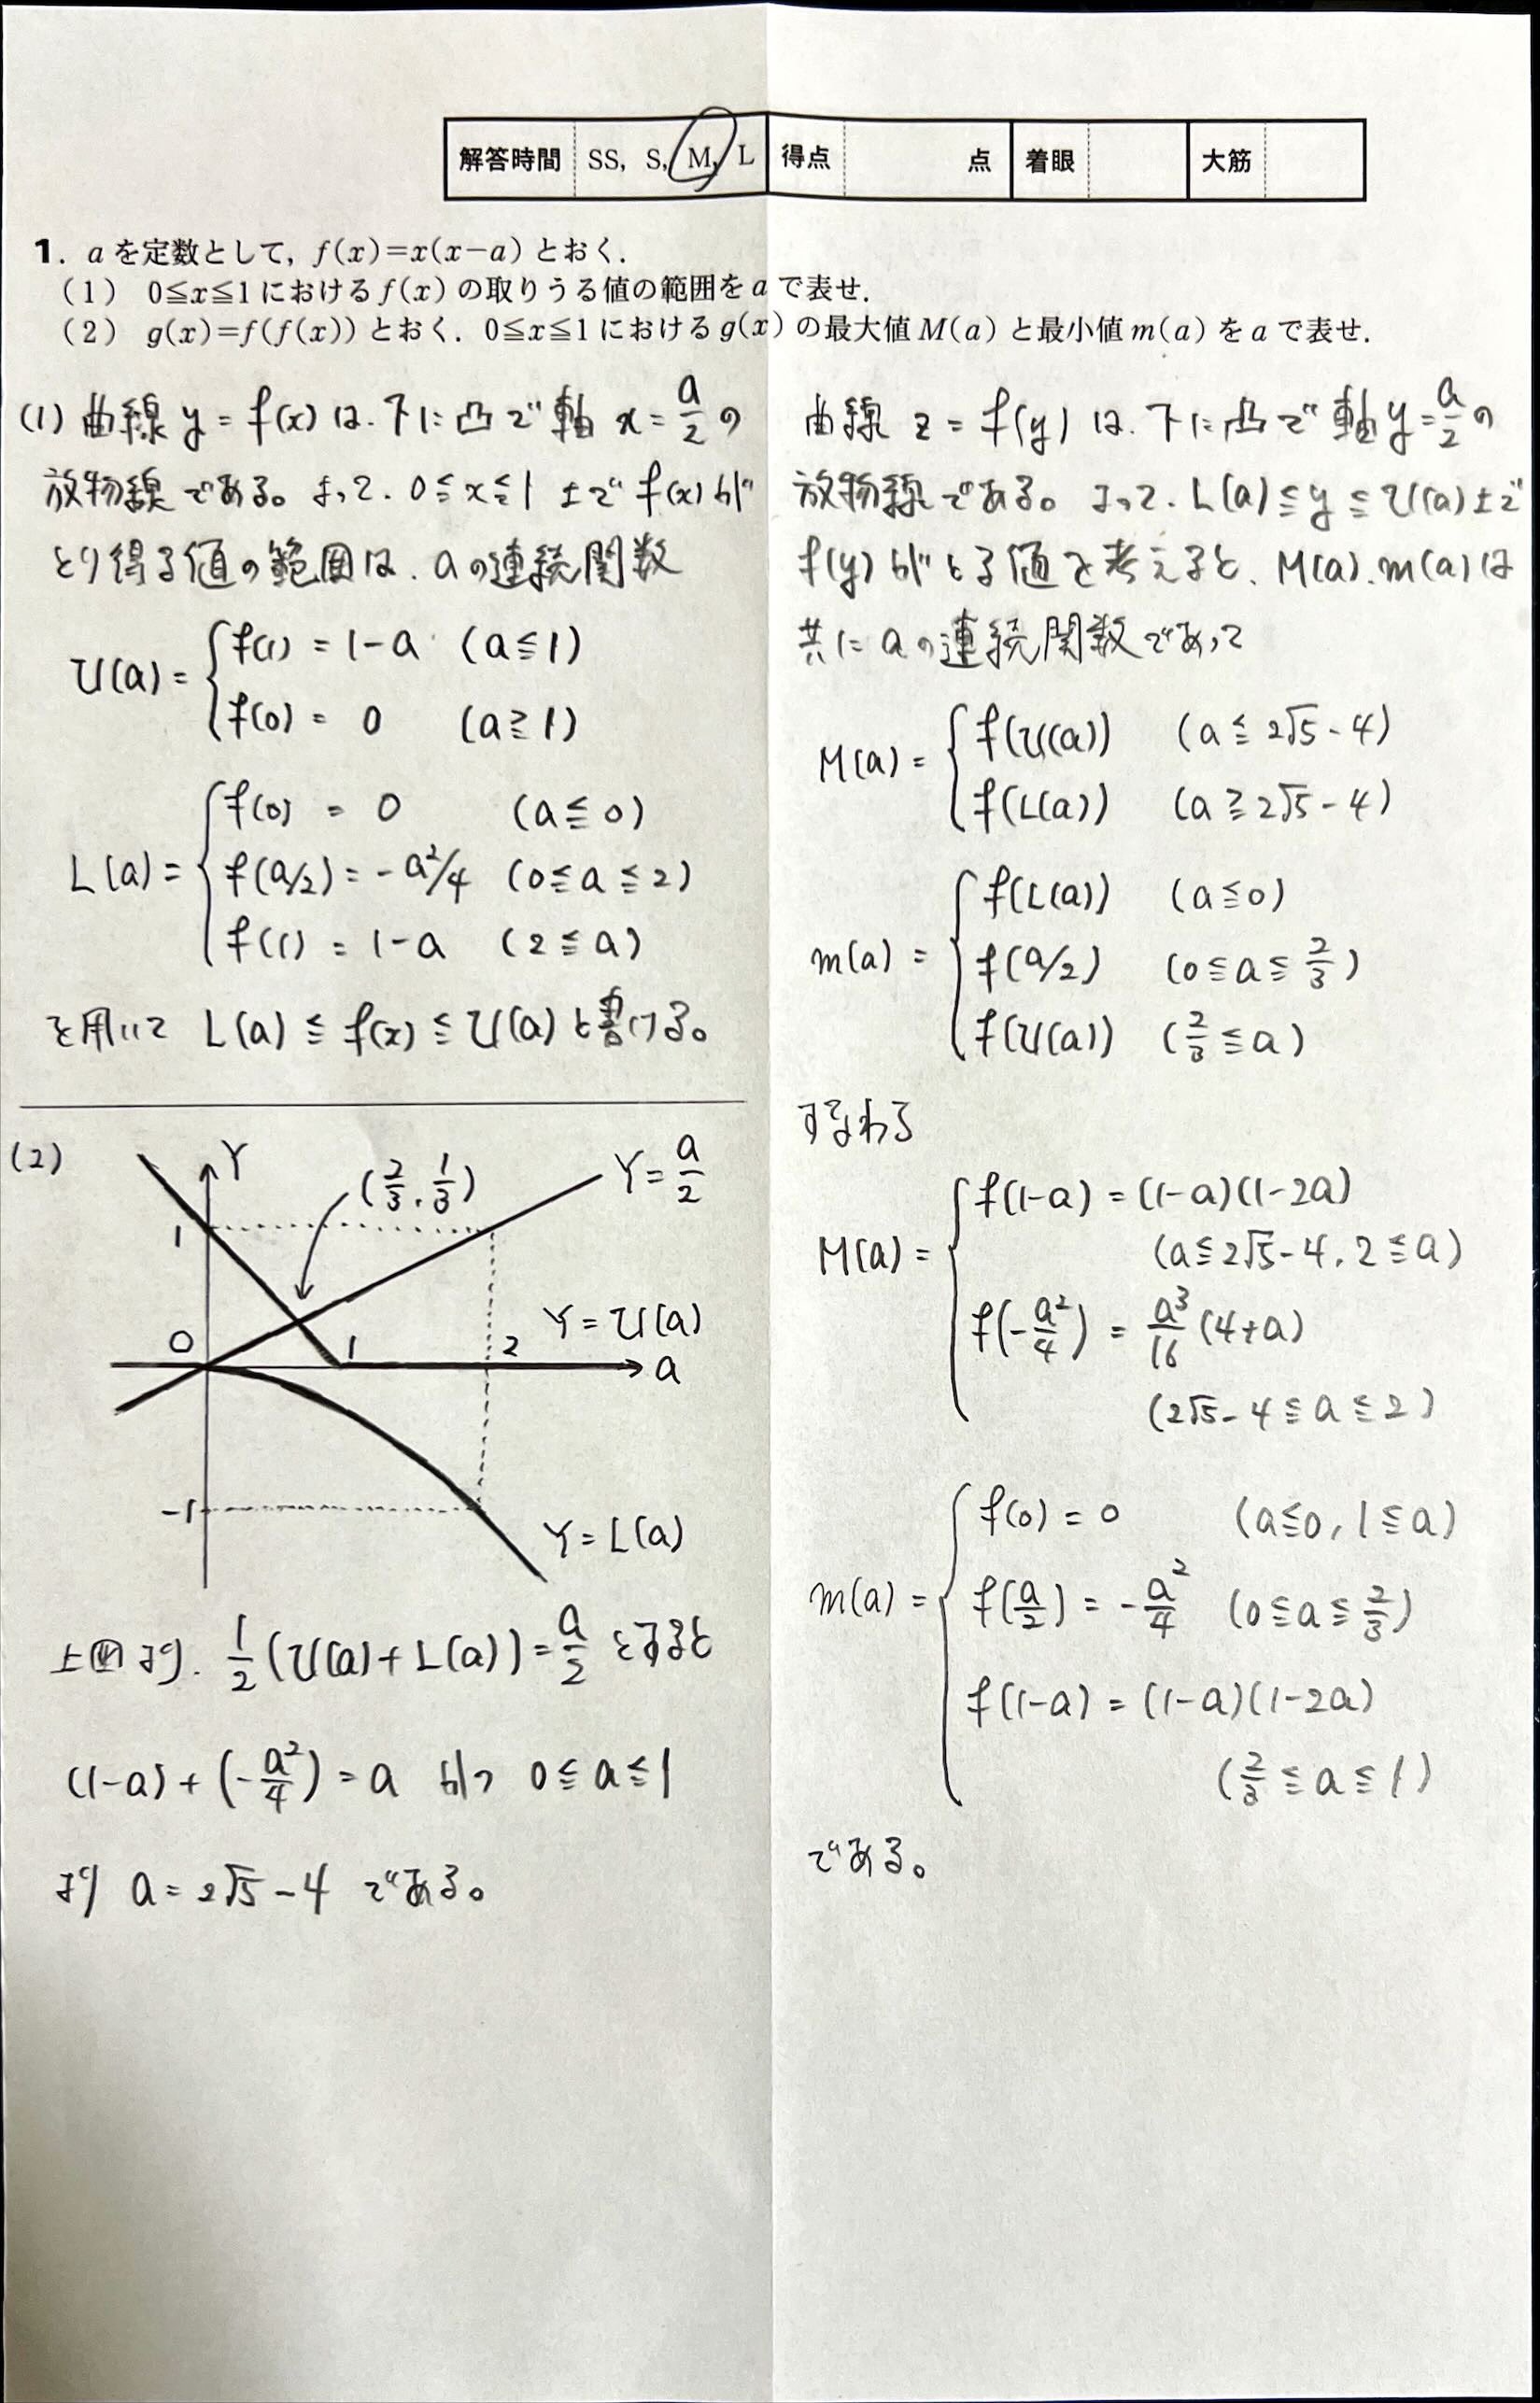 解答時間 SS, S, M, L 得点 点 着眼 大筋
1. aを定数として, f(x)=x(x-a) とおく.
(1) 0≦x≦1 における f(x) の取りうる値の範囲を a で表せ.
(2) g(x)=f(f(x)) とおく. 0≦x≦1 における g(x) の最大値 M(a) と最小値 m(a) を a で表せ.
(1) 曲線 y = f(x) は、下に凸で軸 x = a/2 の
放物線である。よって、0≦x≦1 上で f(x) が
とり得る値の範囲は、aの連続関数
U(a) = { f(1) = 1-a (a≦1)
f(0) = 0 (a≧1)
L(a) = { f(0) = 0 (a≦0)
f(a/2) = -a²/4 (0≦a≦2)
f(1) = 1-a (2≦a)
を用いて L(a) ≦ f(x) ≦ U(a) と書ける。
(2)
Y
(2/3, 1/3)
Y = a/2
1
Y = U(a)
0 1 2
a
-1
Y = L(a)
上図より、1/2 (U(a) + L(a)) = a/2 とすると
(1-a) + (-a²/4) = a かつ 0≦a≦1
より a = 2√5 - 4 である。
曲線 z = f(y) は、下に凸で軸 y = a/2 の
放物線である。よって、L(a) ≦ y ≦ U(a) 上で
f(y) がとる値を考えると、M(a), m(a) は
共に a の連続関数であって
M(a) = { f(U(a)) (a ≦ 2√5 - 4)
f(L(a)) (a ≧ 2√5 - 4)
m(a) = { f(L(a)) (a≦0)
f(a/2) (0≦a≦2/3)
f(U(a)) (2/3≦a)
すなわち
M(a) = { f(1-a) = (1-a)(1-2a)
(a≦2√5-4, 2≦a)
f(-a²/4) = a³/16 (4+a)
(2√5-4≦a≦2)
m(a) = { f(0) = 0 (a≦0, 1≦a)
f(a/2) = -a²/4 (0≦a≦2/3)
f(1-a) = (1-a)(1-2a)
(2/3≦a≦1)
である。